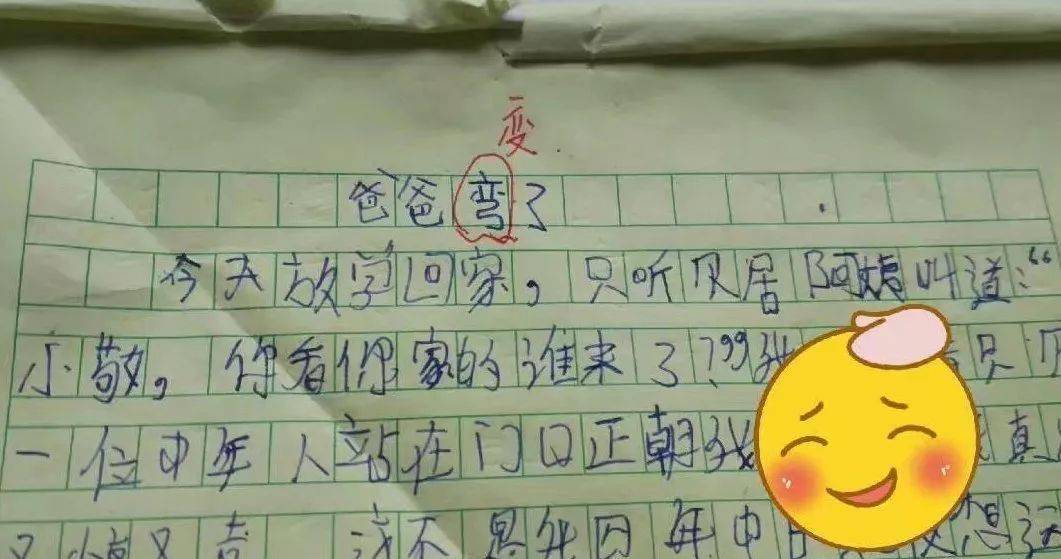 变
爸爸弯了
今天放学回家。只听见居阿姨叫道:“
小敬。你看你家的谁来了?”我 只见
一位中年人站在门口正朝我 真
又 又 这不是 年中